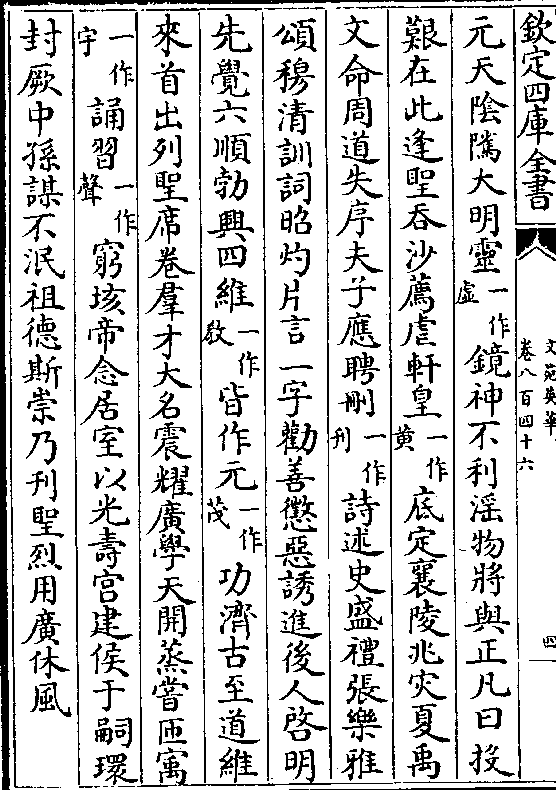 欽定四庫全書
文苑英華
卷八百四十六
四
元天陰隲大明靈一作虛鏡神不利滛物將與正凡曰投
艱在此逢聖吞沙薦虐軒皇一作黄底定襄陵兆灾夏禹
文命周道失序夫子應聘刪一作刋詩述史盛禮張樂雅
頌穆清訓詞昭灼片言一字勸善懲惡誘進後人啓明
先覺六順勃興四維一作敎皆作元一作茂功濟古至道維
來首出列聖席卷羣才大名震耀廣學天開蒸嘗匝寓
一作宇誦習一作聲窮垓帝念居室以光壽宫建侯于嗣環
封厥中孫謀不泯祖德斯崇乃刋聖烈用廣休風